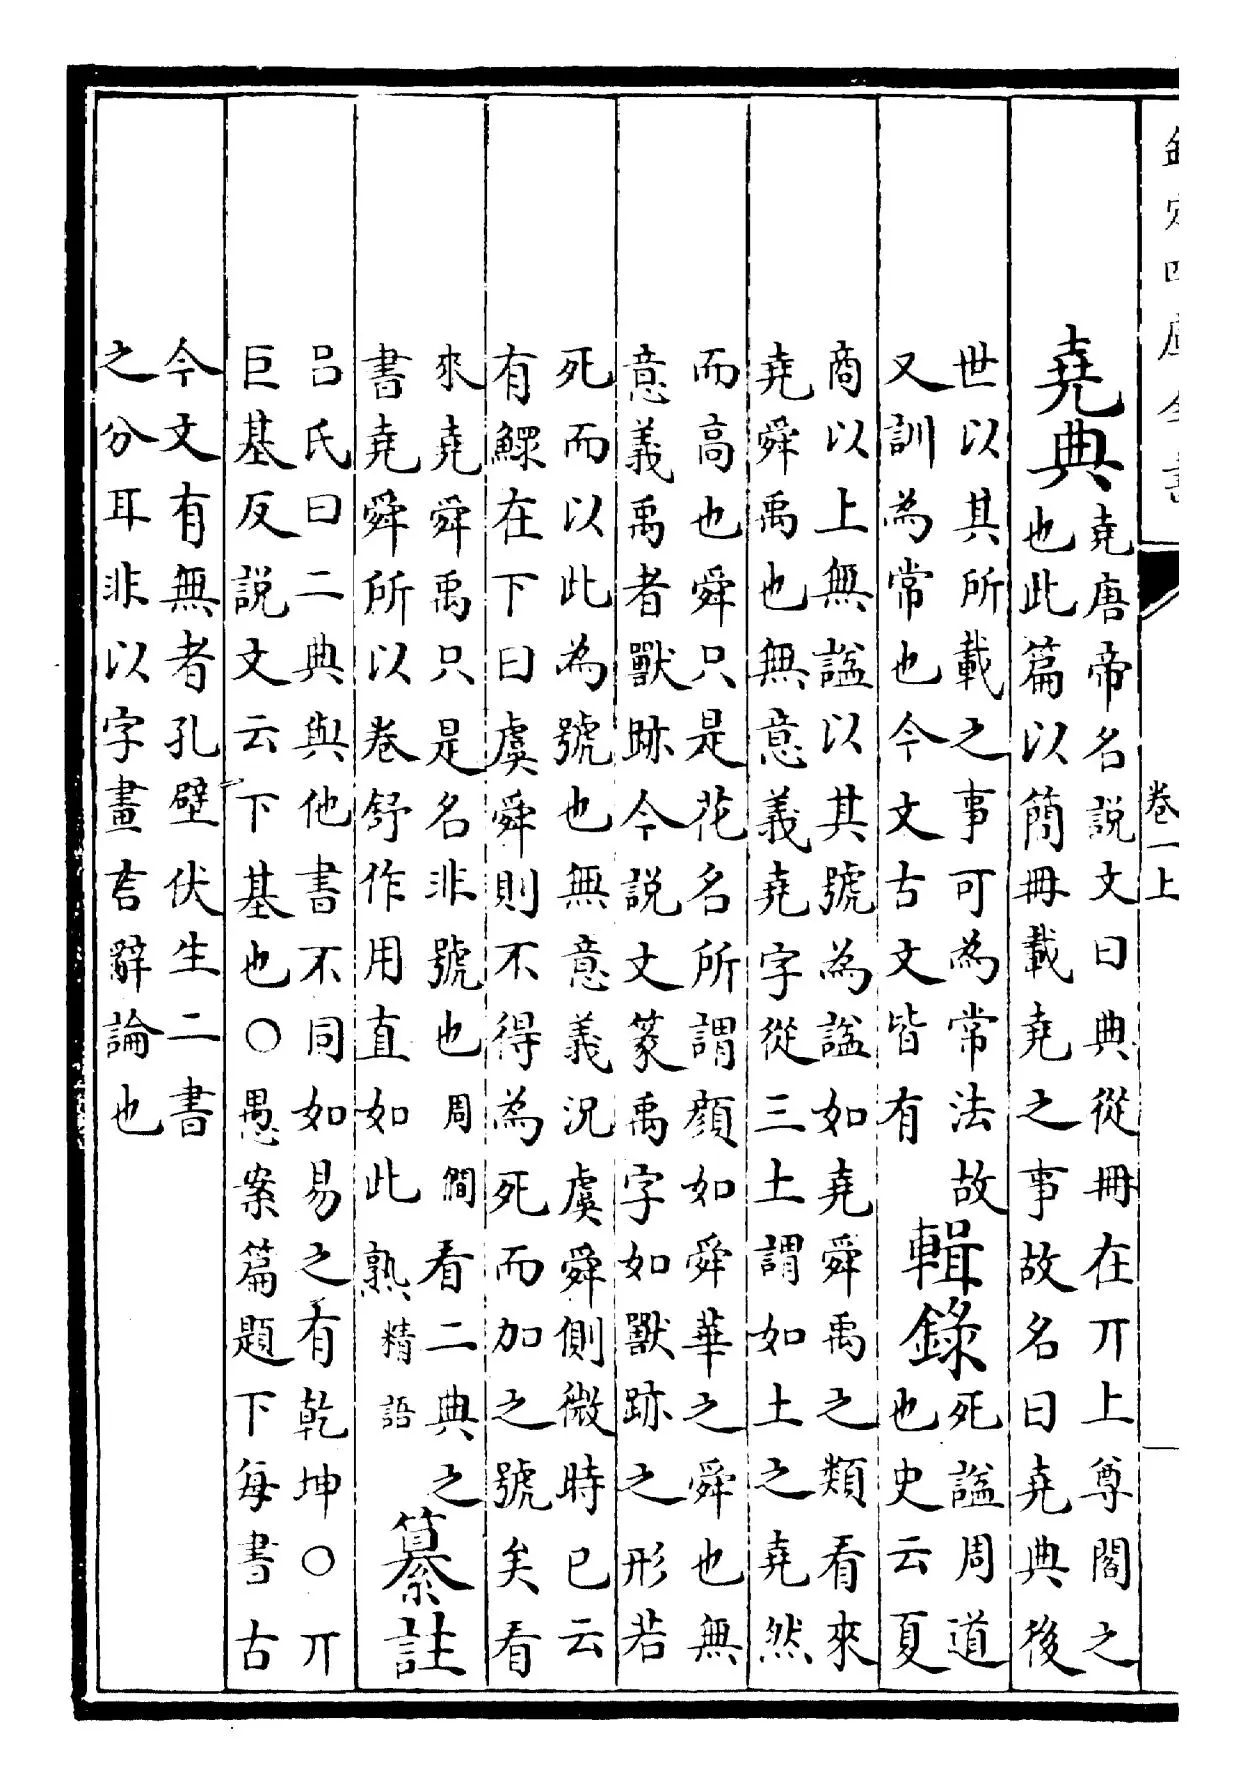 欽定四庫全書
卷一上
堯典
堯唐帝名説文曰典從冊在丌上尊閣之
也此篇以簡冊載堯之事故名曰堯典後
世以其所載之事可為常法故
又訓為常也今文古文皆有
輯錄
死謚周道
也史云夏
商以上無謚以其號為謚如堯舜禹之類看來
堯舜禹也無意義堯字從三土謂如土之堯然
而高也舜只是花名所謂顔如舜華之舜也無
意義禹者獸跡今説文篆禹字如獸跡之形若
死而以此為號也無意義況虞舜側微時已云
有鰥在下曰虞舜則不得為死而加之號矣看
來堯舜禹只是名非號也周僩看二典之
書堯舜所以卷舒作用直如此熟精語
纂註
吕氏曰二典與他書不同如易之有乾坤○丌
巨基反説文云下基也○愚案篇題下每書古
今文有無者孔壁伏生二書
之分耳非以字畫言辭論也